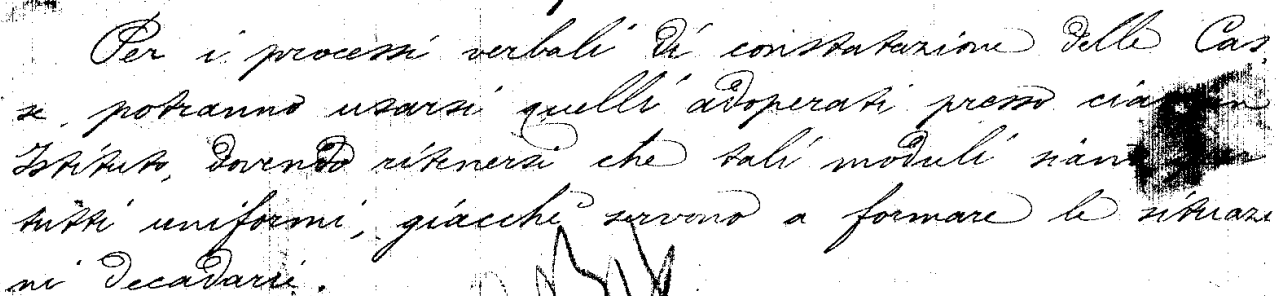 Per i processi verbali di constatazione delle Cas
se, potranno usarsi quelli adoperati presso ciascun
Istituto, dovendo ritenersi che tali moduli siano
tutti uniformi, giacchè servono a formare le situazi
ni decadarie.